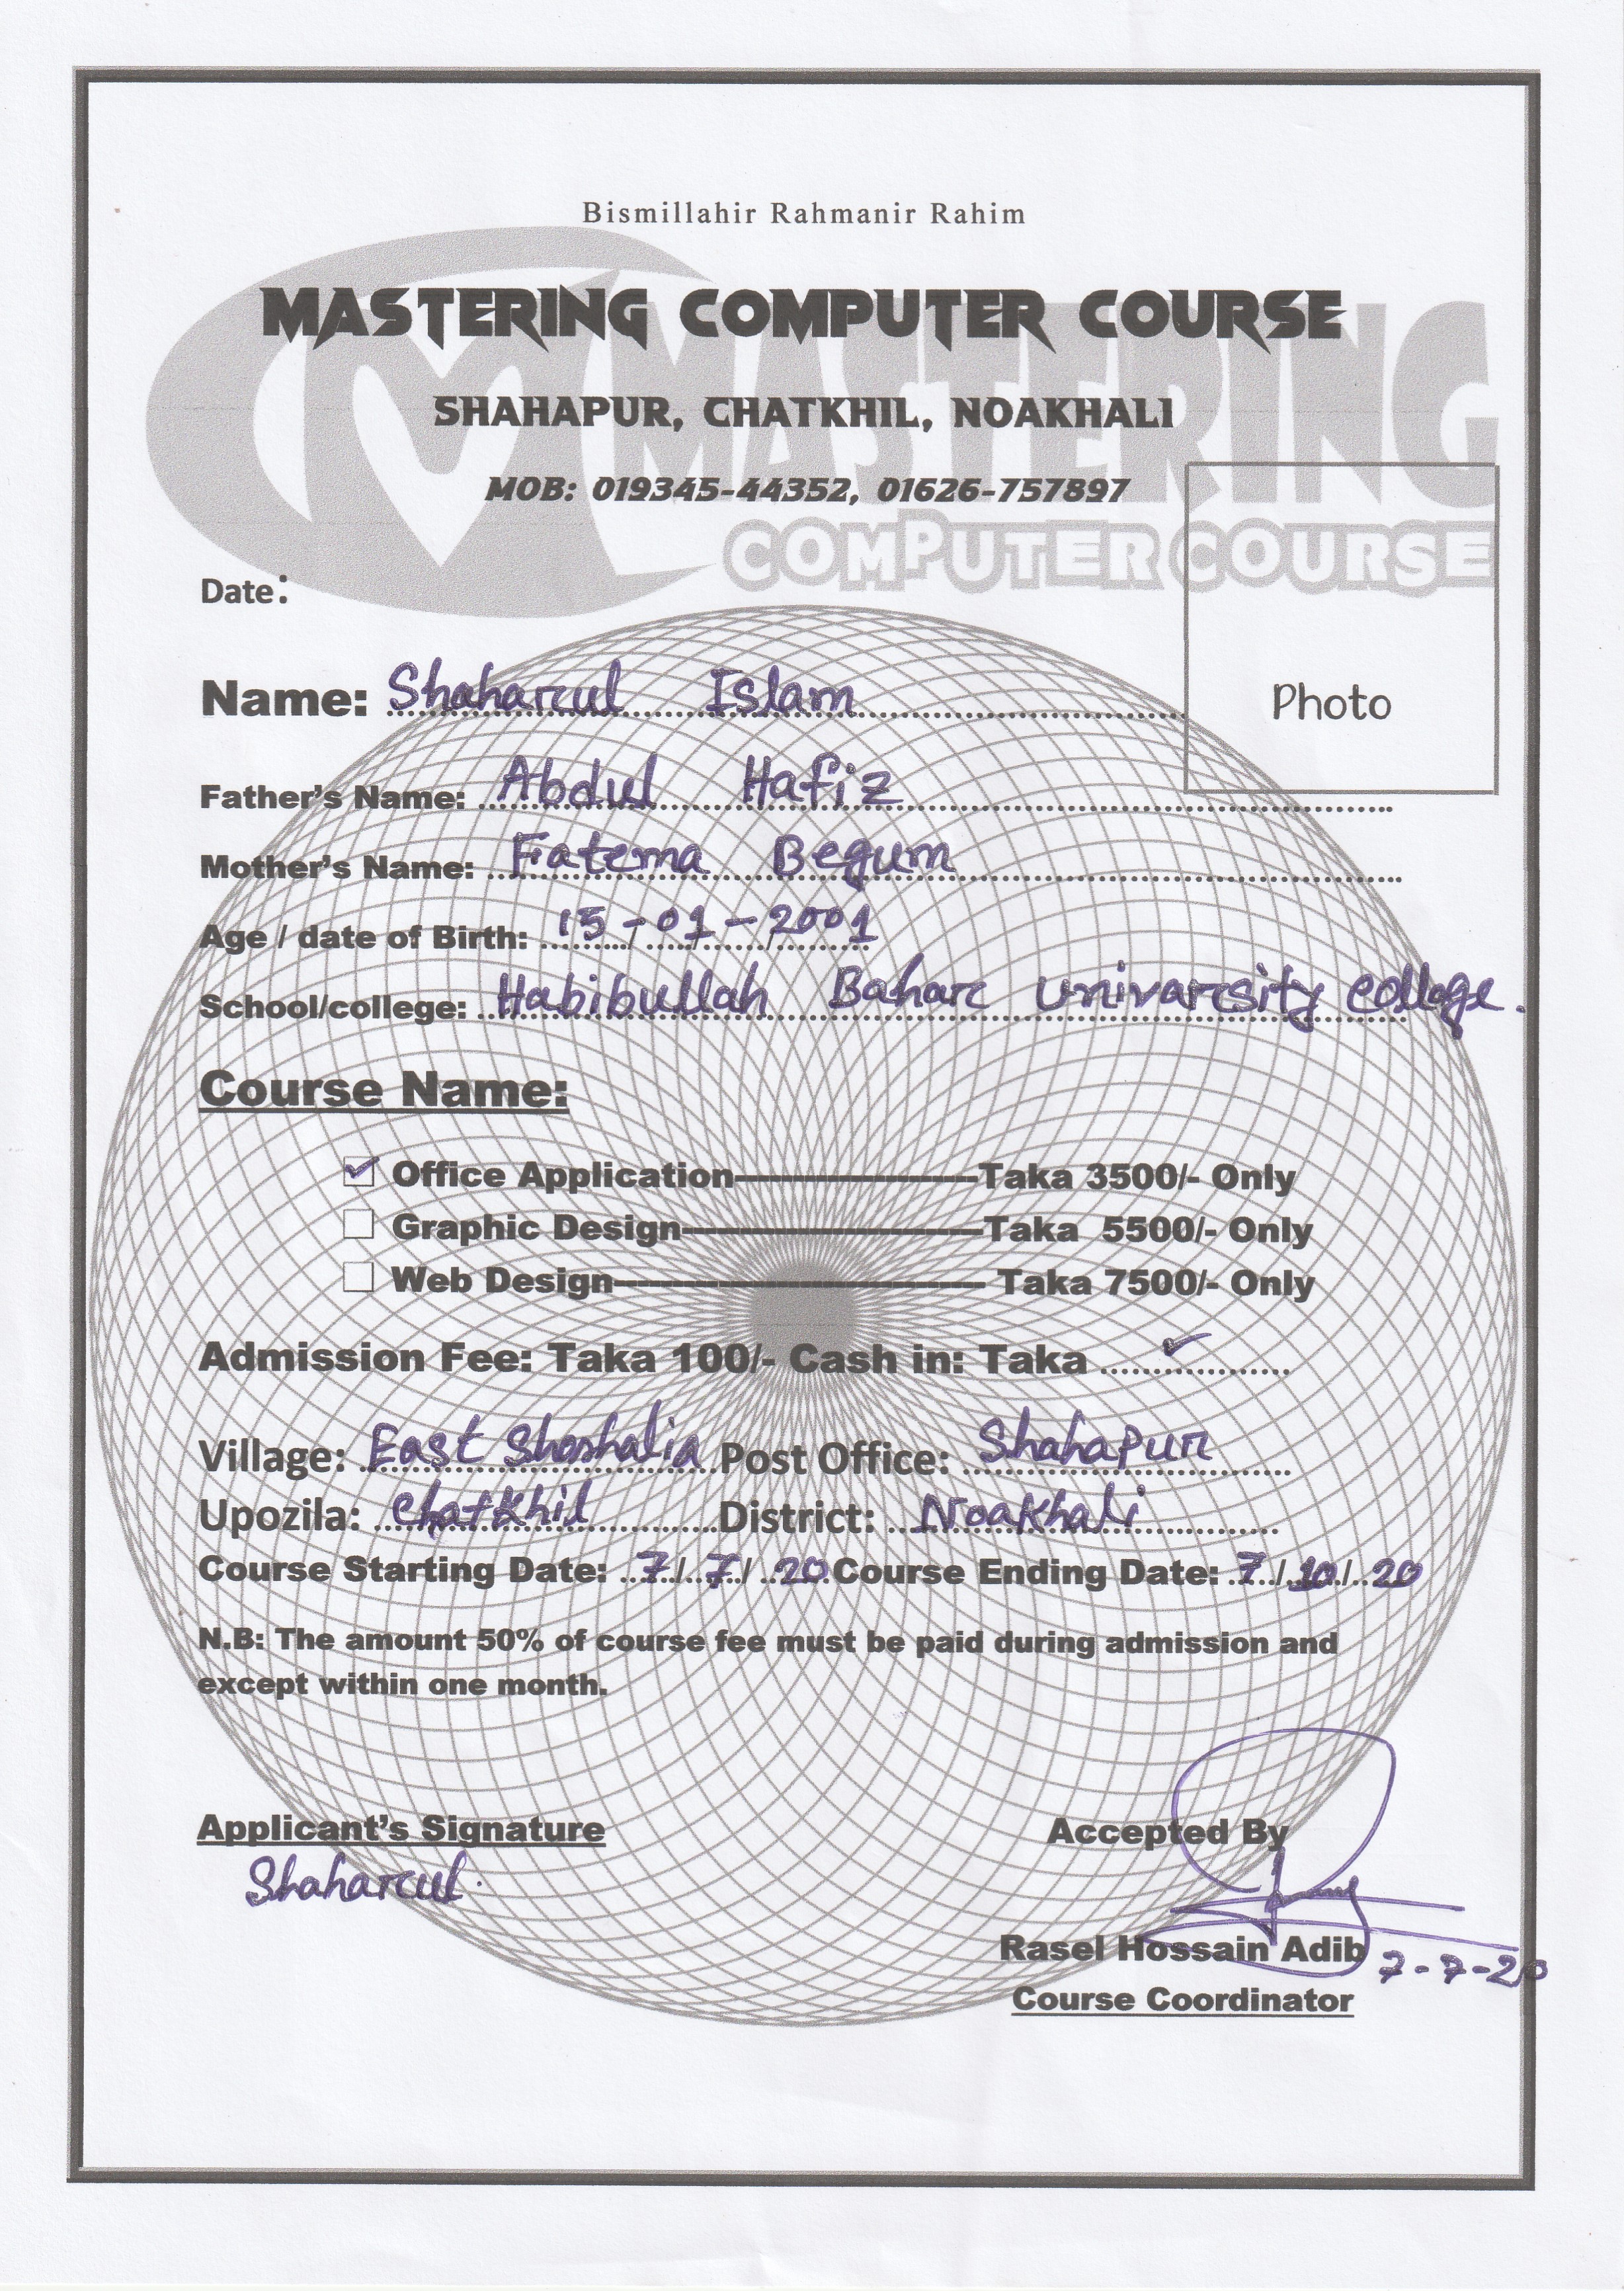 Bismillahir Rahmanir Rahim
MASTERING COMPUTER COURSE
MASTERING
SHAHAPUR, CHATKHIL, NOAKHALI
MOB: 019345-44352, 01626-757897
COMPUTER COURSE
Date:
Photo
Name: Shaharul Islam
Father's Name: Abdul Hafiz
Mother's Name: Fatema Begum
Age / date of Birth: 15-01-2001
School/college: Habibullah Bahar univarsity college.
Course Name:
✓ Office Application Taka 3500/- Only
Graphic Design Taka 5500/- Only
Web Design Taka 7500/- Only
Admission Fee: Taka 100/- Cash in: Taka ✓
Village: East Shoshalia Post Office: Shahapur
Upozila: Chatkhil District: Noakhali
Course Starting Date: 7/7/20 Course Ending Date: 7/10/20
N.B: The amount 50% of course fee must be paid during admission and
except within one month.
Applicant's Signature Accepted By
Shaharul.
Rasel Hossain Adib 7-7-20
Course Coordinator